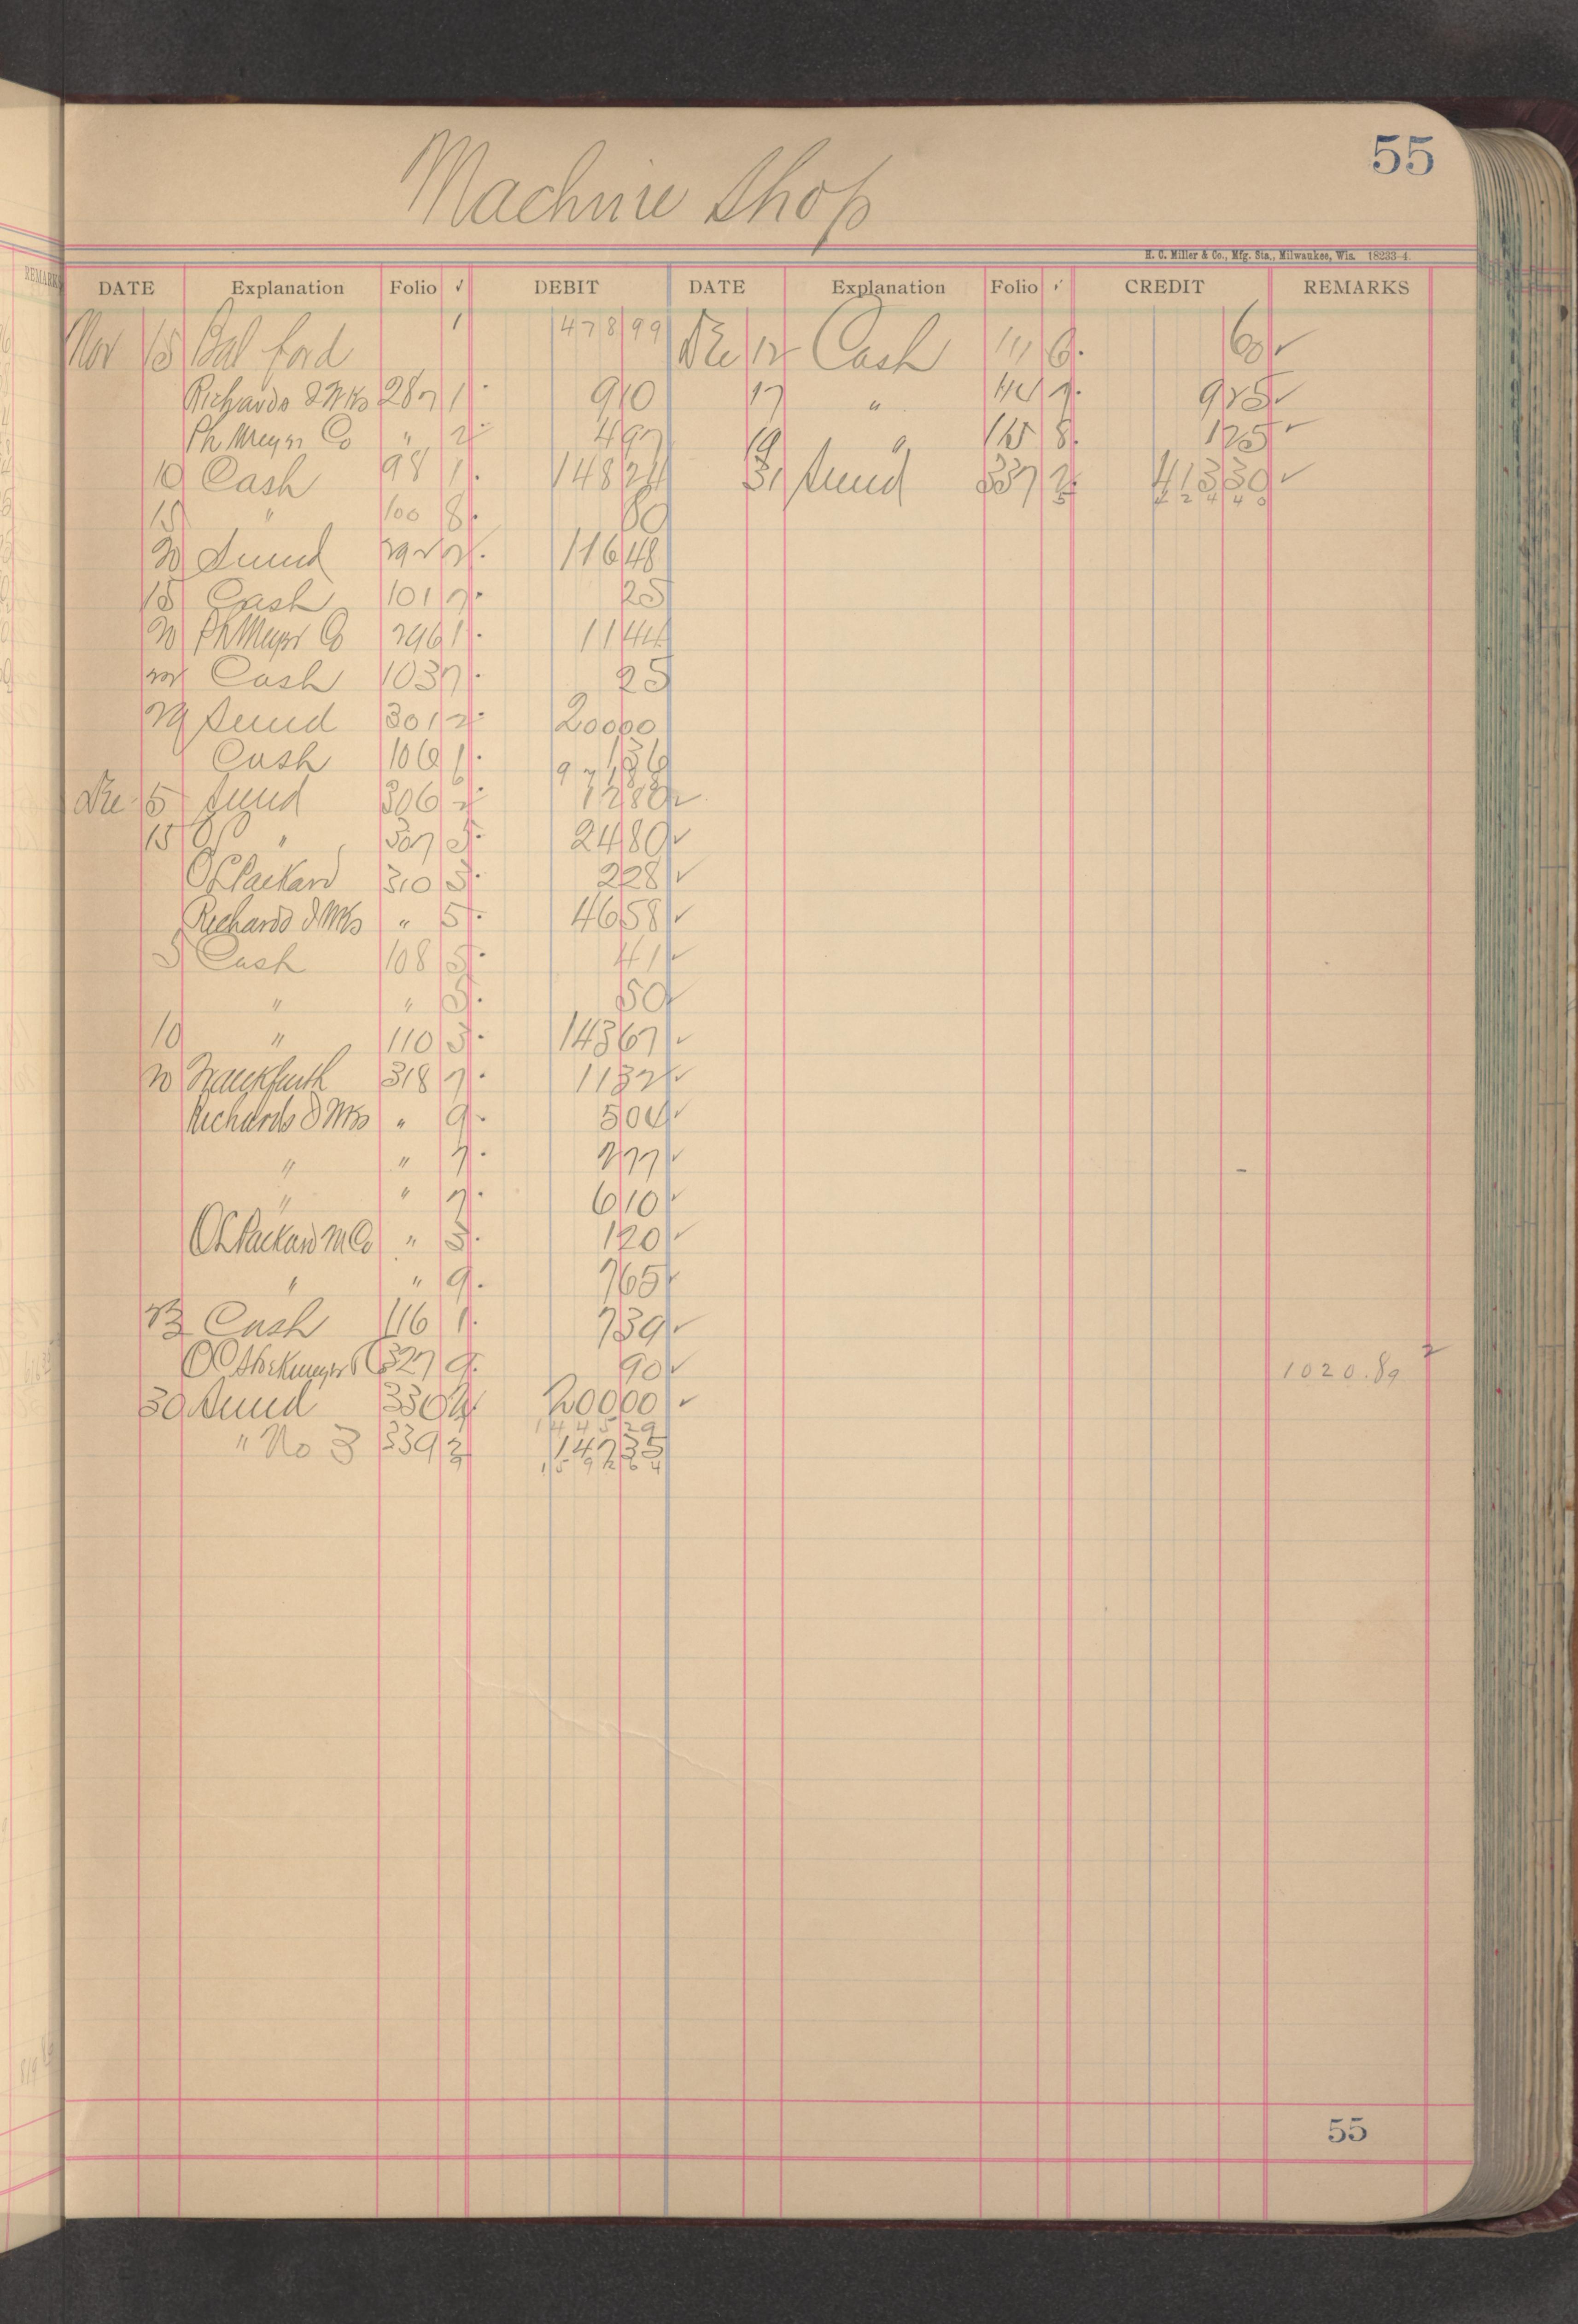 55
Machine Shop
H. C. Miller & Co., Mfg. Sta., Milwaukee, Wis. 18233-4.
DATE Explanation Folio ✓ DEBIT DATE Explanation Folio ✓ CREDIT REMARKS
Nov 15 Bal ford 1 478 99 Dec 12 Cash 111 6. 60 ✓
Richards 287 1. 9 10 17 " 114 7. 9 25 ✓
Ph Meyer Co " 2. 4 97 19 " 115 8. 1 25 ✓
10 Cash 98 1. 148 24 31 Sund 337 2. 413 30 ✓
424 40
15 " 100 8. 80
20 Sund 292 2. 116 48
18 Cash 101 7. 25
20 Ph Meyer Co 296 1. 11 44
22 Cash 103 7. 25
29 Sund 301 2. 200 00
Cash 106 1. 1 36
971 88
Dec 5 Sund 306 2. 12 80 ✓
15 " 307 5. 24 80 ✓
O L Packard 310 3. 2 28 ✓
Richards " 5. 46 58 ✓
5 Cash 108 5. 41 ✓
" " 5. 50 ✓
10 " 110 3. 143 67 ✓
20 Frankfurth 318 7. 11 32 ✓
Richards " 9. 5 04 ✓
" " 7. 2 77 ✓
" " 7. 6 10 ✓
O L Packard M Co " 3. 1 20 ✓
" " 9. 7 65 ✓
23 Cash 116 1. 7 39 ✓
327 9. 90 ✓
1020.89
30 Sund 330 2. 200 00 ✓
1445 29
" No 3 339 2 147 35
1592 64
55